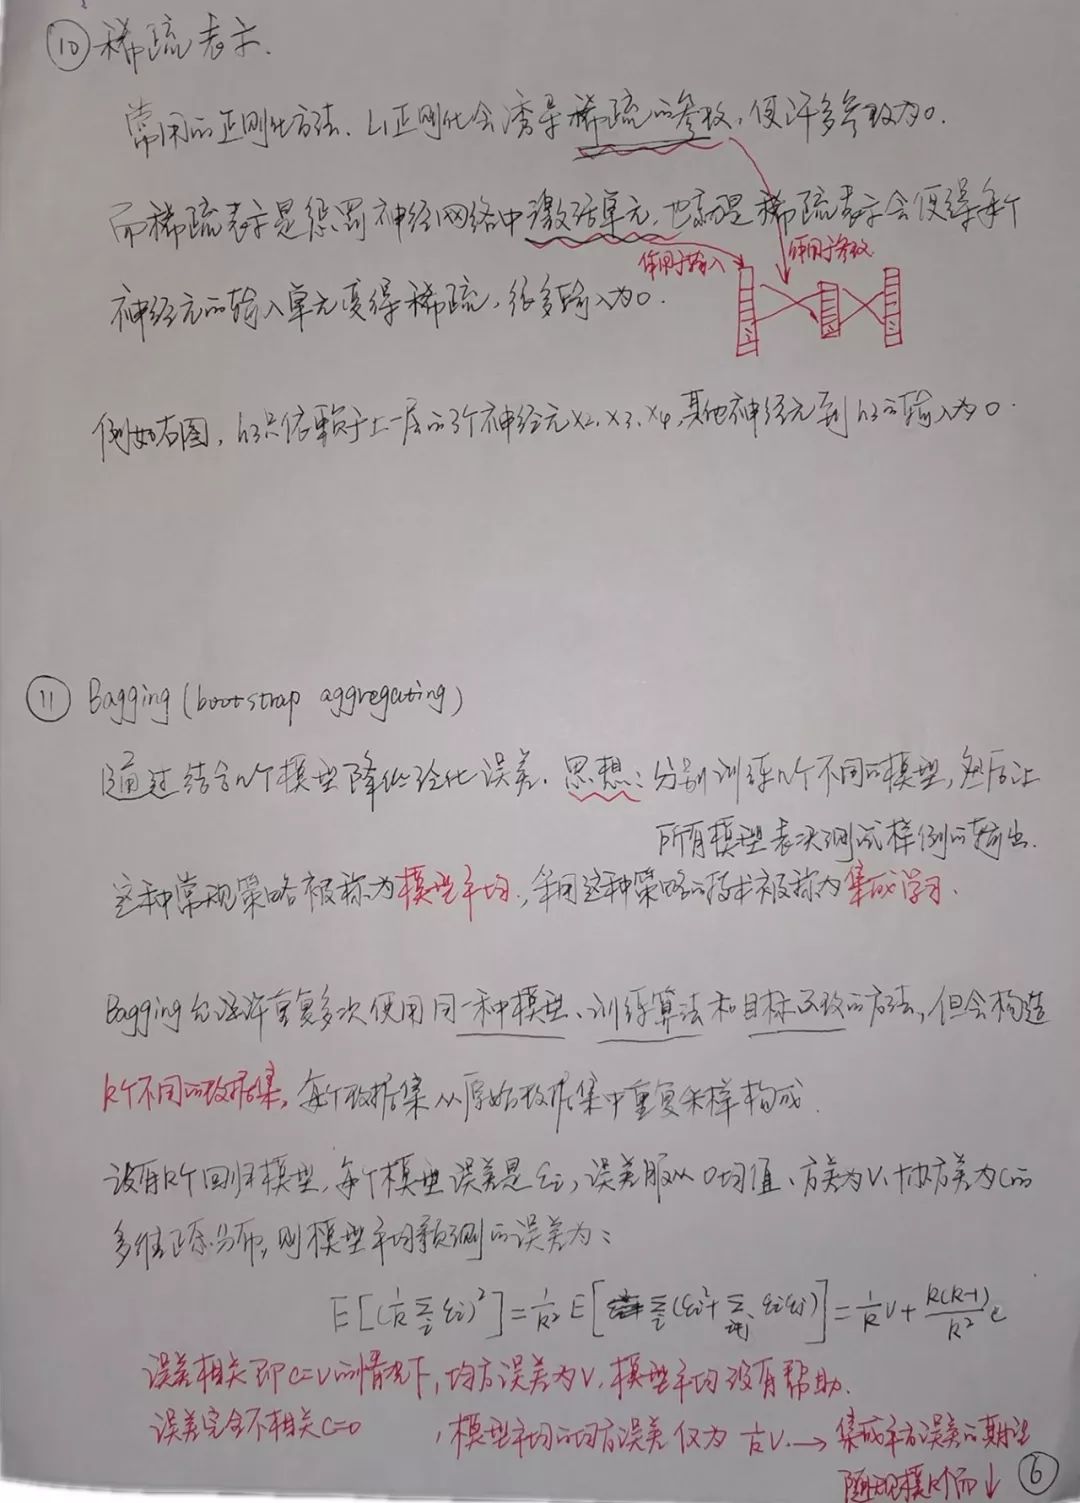 ⑩ 稀疏表示.
常用的正则化方法. L1正则化会诱导稀疏的参数, 使许多参数为0.
而稀疏表示是惩罚神经网络中激活单元, 也就是稀疏表示会使得每个
作用于输入 作用于参数
神经元的输入单元变得稀疏, 很多输入为0.
例如右图, h3只依赖于上一层的3个神经元x2、x3、x4, 其他神经元到h3的输入为0.
⑪ Bagging (bootstrap aggregating)
通过结合n个模型降低泛化误差. 思想: 分别训练n个不同的模型, 然后让
所有模型表决测试样例的输出.
这种常规策略被称为模型平均, 采用这种策略的技术被称为集成学习.
Bagging允许重复多次使用同一种模型、训练算法和目标函数的方法, 但会构造
k个不同的数据集, 每个数据集从原始数据集中重复采样构成.
设有k个回归模型, 每个模型误差是εi, 误差服从0均值、方差为v、协方差为c的
多维正态分布, 则模型平均预测的误差为:
E[(1/k Σi εi)²] = 1/k² E[Σi(εi² + Σi≠j εiεj)] = 1/k v + k(k-1)/k² c
误差相关即c=v的情况下, 均方误差为v, 模型平均没有帮助.
误差完全不相关c=0 , 模型平均的均方误差仅为 1/k v. → 集成平方误差的期望
随规模k↑而↓ ⑥